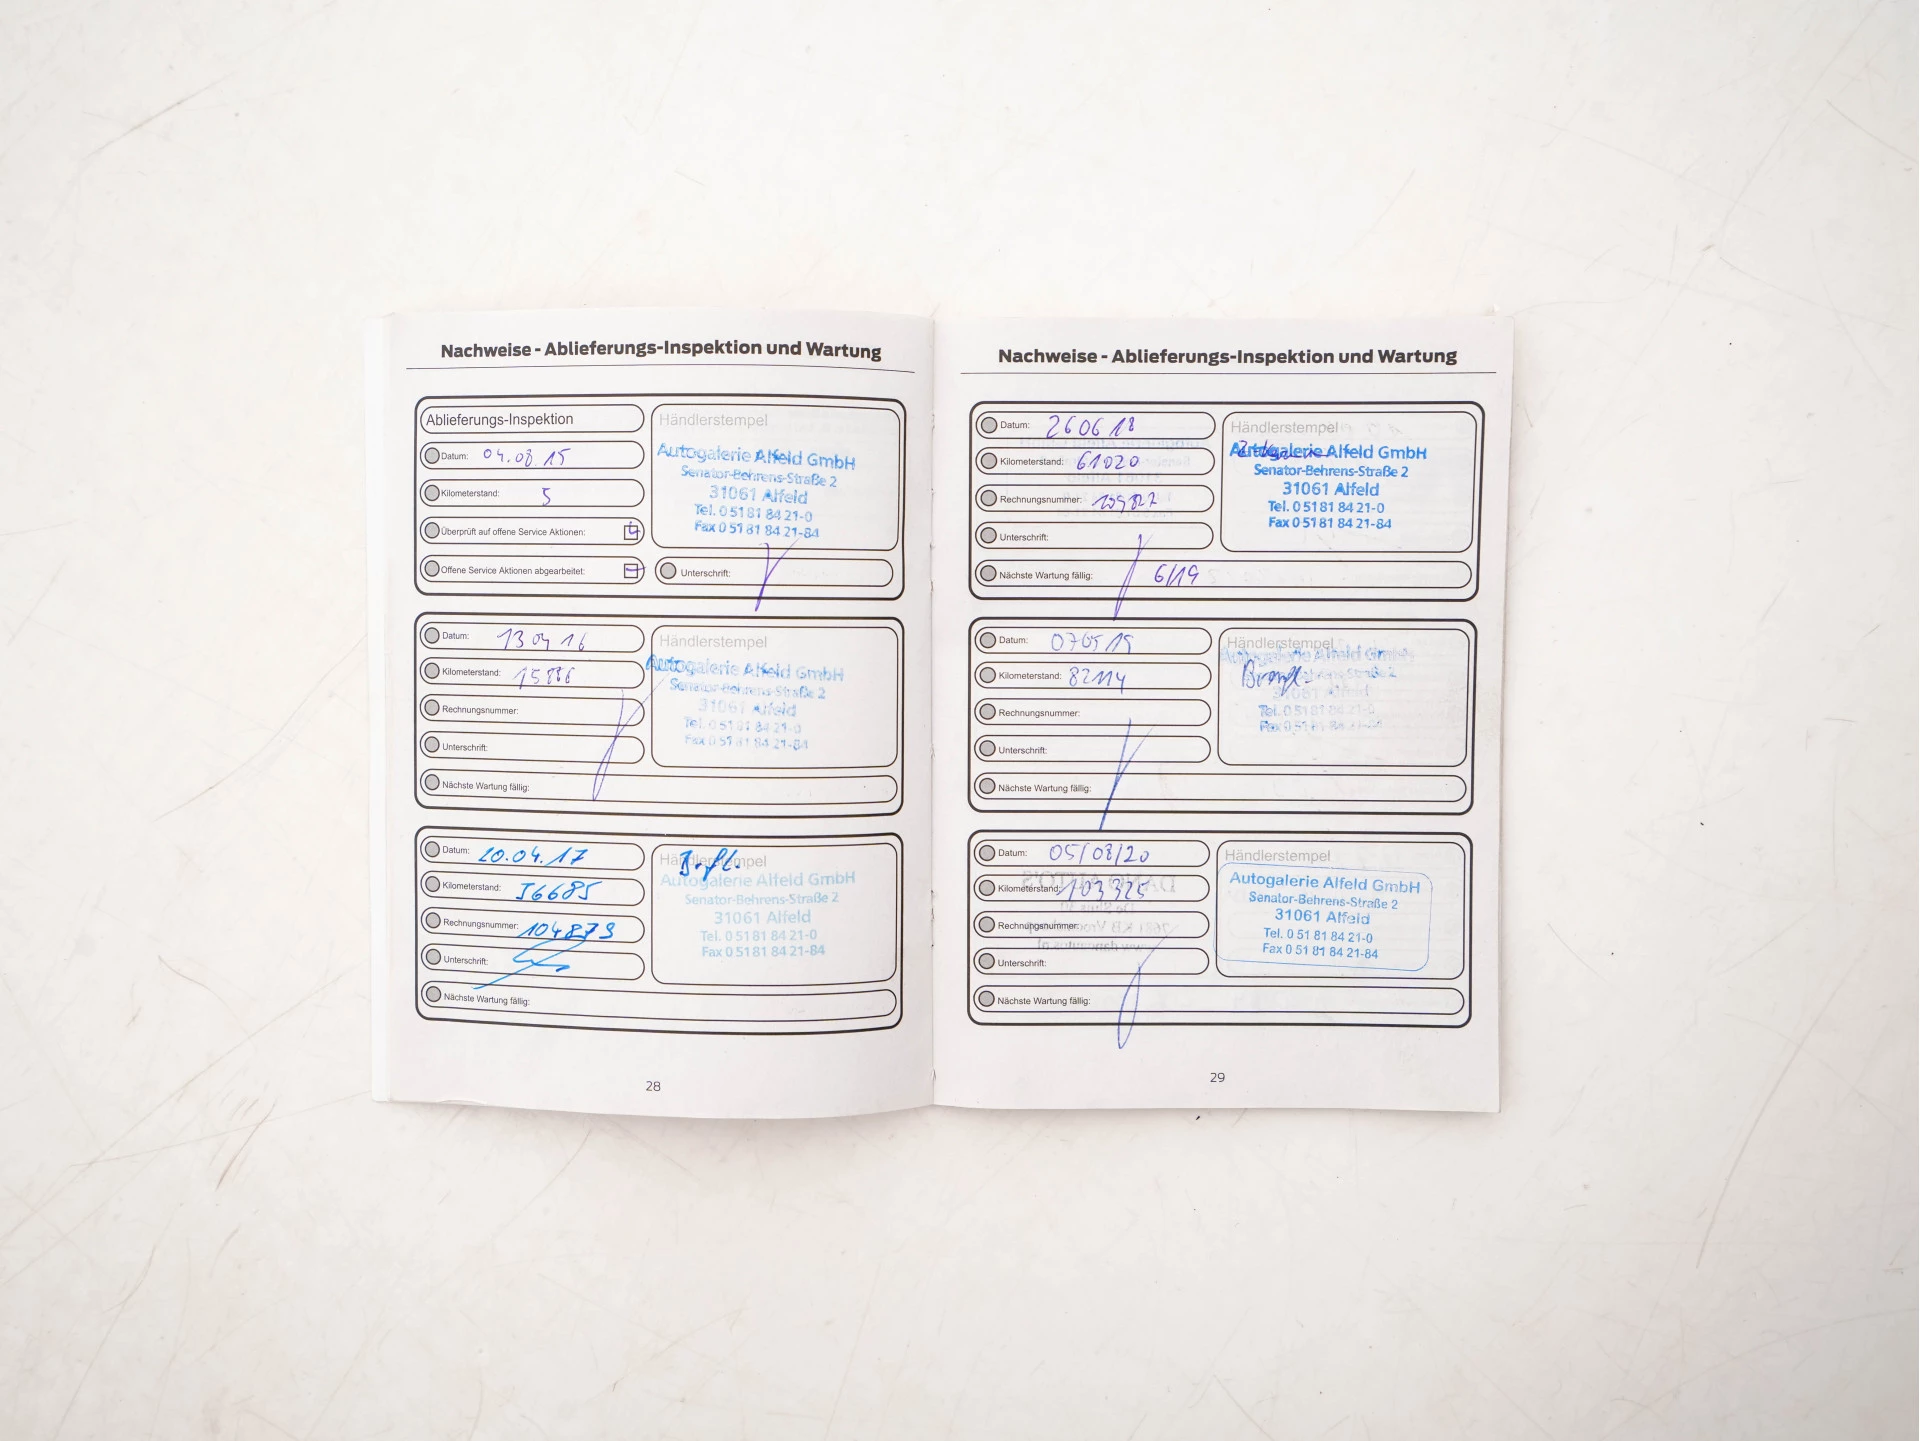 Nachweise - Ablieferungs-Inspektion und Wartung
Ablieferungs-Inspektion
Datum: 04.08.15
Kilometerstand: 5
Überprüft auf offene Service Aktionen:
Offene Service Aktionen abgearbeitet:
Händlerstempel
Autogalerie Alfeld GmbH
Senator-Behrens-Straße 2
31061 Alfeld
Tel. 0 51 81 84 21-0
Fax 0 51 81 84 21-84
Unterschrift:
Datum: 13 04 16
Kilometerstand: 15886
Rechnungsnummer:
Unterschrift:
Nächste Wartung fällig:
Händlerstempel
Autogalerie Alfeld GmbH
Senator-Behrens-Straße 2
31061 Alfeld
Tel. 0 51 81 84 21-0
Fax 0 51 81 84 21-84
Datum: 20.04.17
Kilometerstand: 36685
Rechnungsnummer: 104873
Unterschrift:
Nächste Wartung fällig:
Händlerstempel
Autogalerie Alfeld GmbH
Senator-Behrens-Straße 2
31061 Alfeld
Tel. 0 51 81 84 21-0
Fax 0 51 81 84 21-84
28
Nachweise - Ablieferungs-Inspektion und Wartung
Datum: 26 06 18
Kilometerstand: 61020
Rechnungsnummer: 109827
Unterschrift:
Nächste Wartung fällig: 6/19
Händlerstempel
Autogalerie Alfeld GmbH
Senator-Behrens-Straße 2
31061 Alfeld
Tel. 0 51 81 84 21-0
Fax 0 51 81 84 21-84
Datum: 07 05 19
Kilometerstand: 82114
Rechnungsnummer:
Unterschrift:
Nächste Wartung fällig:
Händlerstempel
Autogalerie Alfeld GmbH
Senator-Behrens-Straße 2
31061 Alfeld
Tel. 0 51 81 84 21-0
Fax 0 51 81 84 21-84
Datum: 05/08/20
Kilometerstand: 103325
Rechnungsnummer:
Unterschrift:
Nächste Wartung fällig:
Händlerstempel
Autogalerie Alfeld GmbH
Senator-Behrens-Straße 2
31061 Alfeld
Tel. 0 51 81 84 21-0
Fax 0 51 81 84 21-84
29